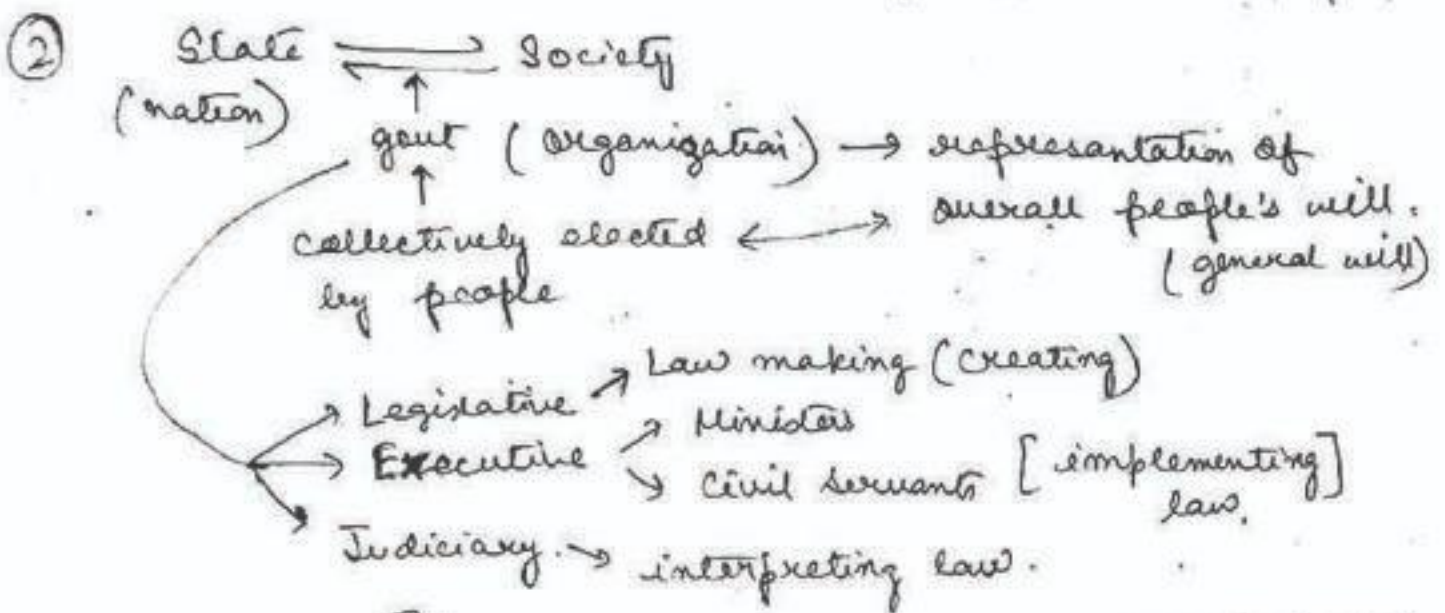 ② State ⇌ Society
(nation)
govt (organization) → represantation of
overall people's will.
(general will)
collectively elected ↔
by people
→ Legislative → Law making (creating)
→ Executive → Ministers
→ Civil servants [implementing]
law.
→ Judiciary. → interpreting law.